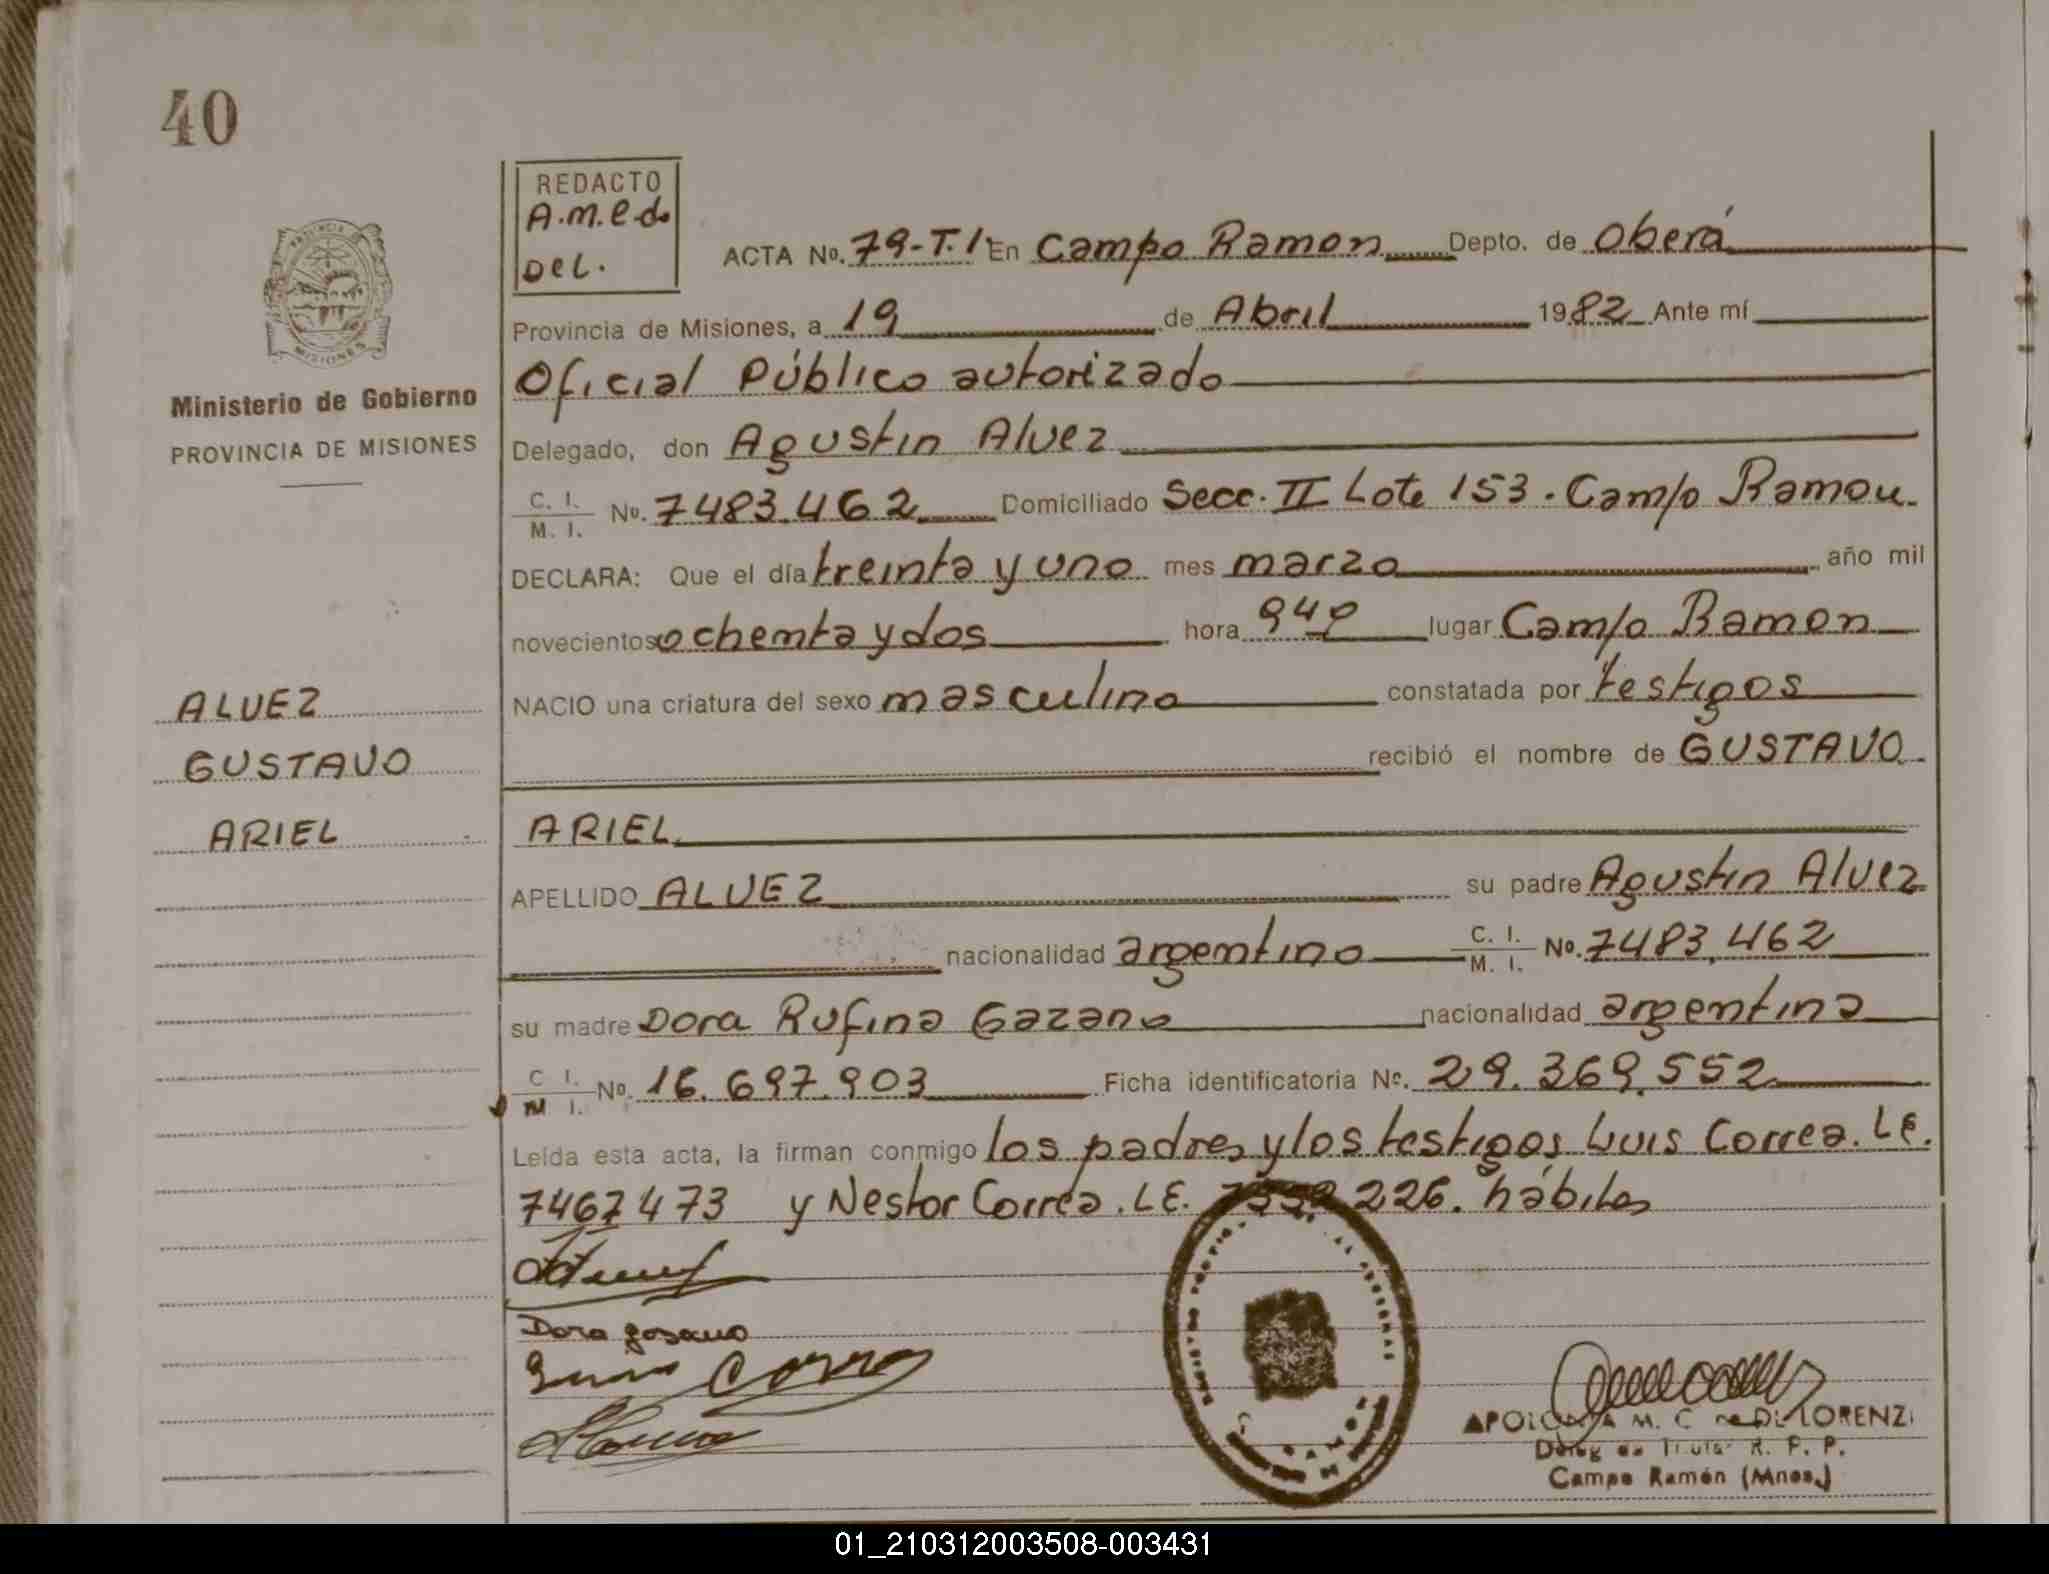 40
REDACTO
A.M.C.d.
DEL.
ACTA No. 79-T.I En Campo Ramon Depto. de Oberá
Provincia de Misiones, a 19 de Abril 1982 Ante mí
Oficial Público autorizado
Ministerio de Gobierno
PROVINCIA DE MISIONES
Delegado, don Agustin Alvez
C. I. / M. I. No. 7483.462 Domiciliado Secc. II Lote 153. Campo Ramon.
DECLARA: Que el día treinta y uno mes marzo año mil
novecientos ochenta y dos hora 940 lugar Campo Ramon
NACIO una criatura del sexo masculino constatada por testigos
recibió el nombre de GUSTAVO
ALVEZ
GUSTAVO
ARIEL
ARIEL
APELLIDO ALVEZ su padre Agustin Alvez
nacionalidad argentino C. I. / M. I. No. 7483.462
su madre Dora Rufina Gazano nacionalidad argentina
C I. / M I. No. 16.697.903 Ficha identificatoria No. 29.369.552
Leída esta acta, la firman conmigo los padres y los testigos Luis Correa. LE.
7467473 y Nestor Correa. LE. 226. hábiles
Dora gozano
APOLONIA M. C DE LORENZI
Titular R. P. P.
Campo Ramón (Mnes.)
MISIONES
01_210312003508-003431